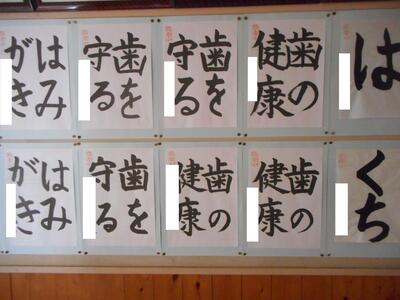 は
歯の
健康
歯を
守る
歯を
守る
はみ
がき
くち
歯の
健康
歯の
健康
歯を
守る
はみ
がき